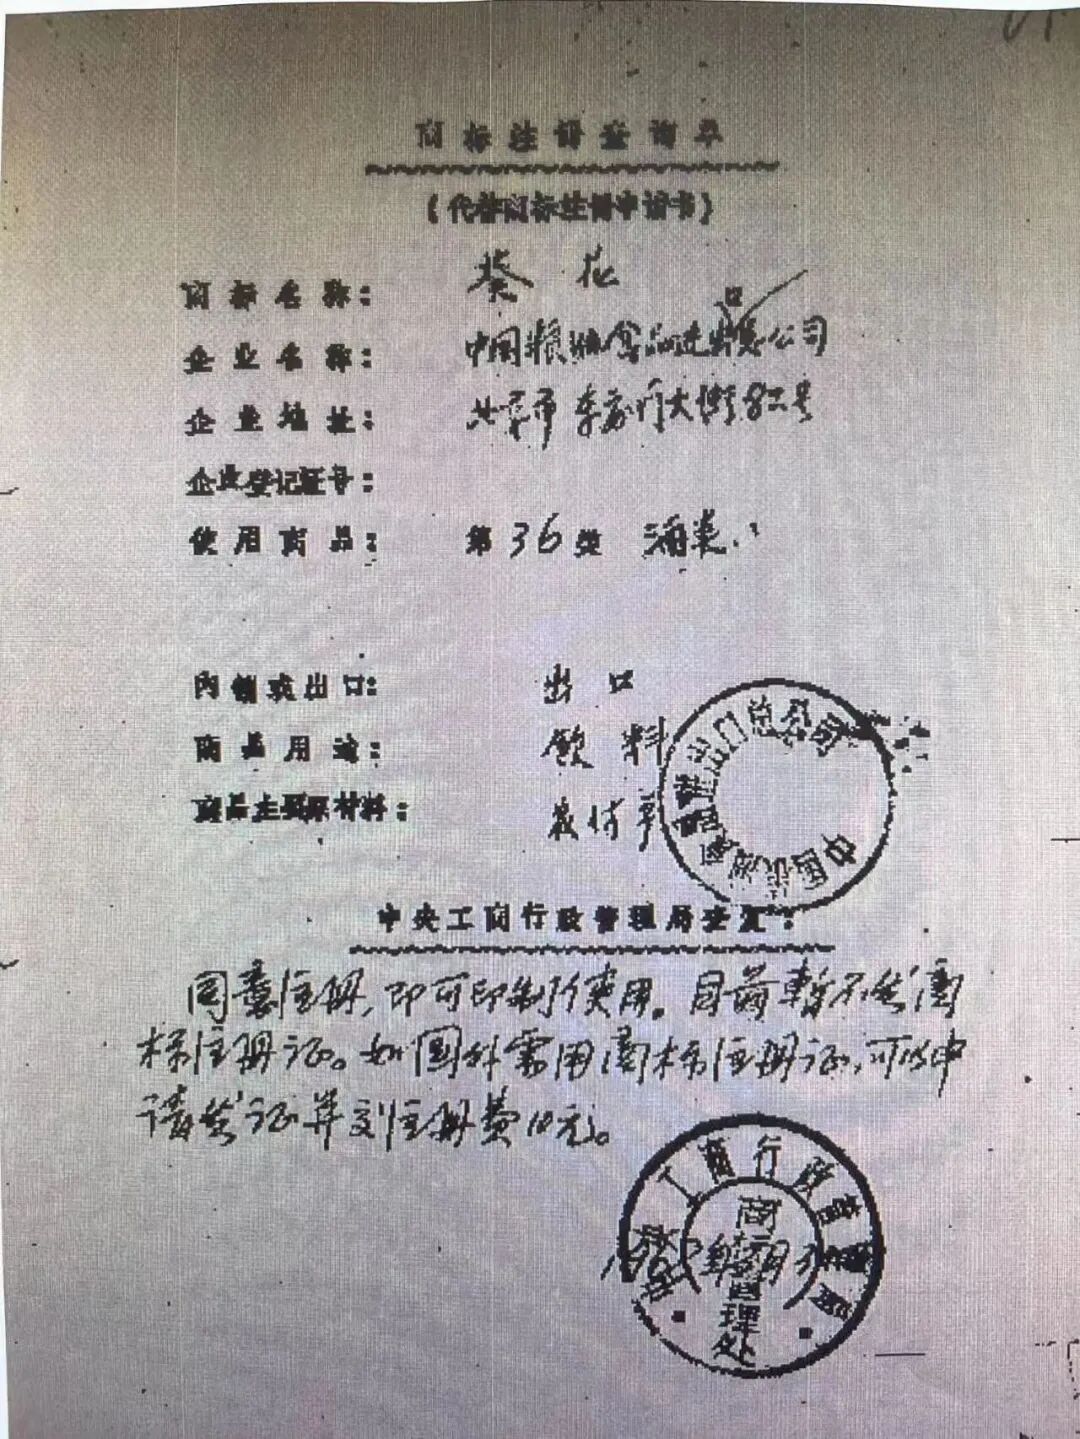 商标注册查询单
（代替商标注册申请书）
商标名称： 葵花
企业名称： 中国粮油食品进出口总公司
企业地址： 北京市东安门大街82号
企业登记证号：
使用商品： 第36类 酒类
内销或出口： 出口
商品用途： 饮料
商品主要原材料：
中国粮油食品进出口总公司
中央工商行政管理局
同意注册，即可印制使用。目前暂不发商
标注册证。如国外需用商标注册证，可以申
请发证并交注册费10元。
中央工商行政管理局
商标管理处